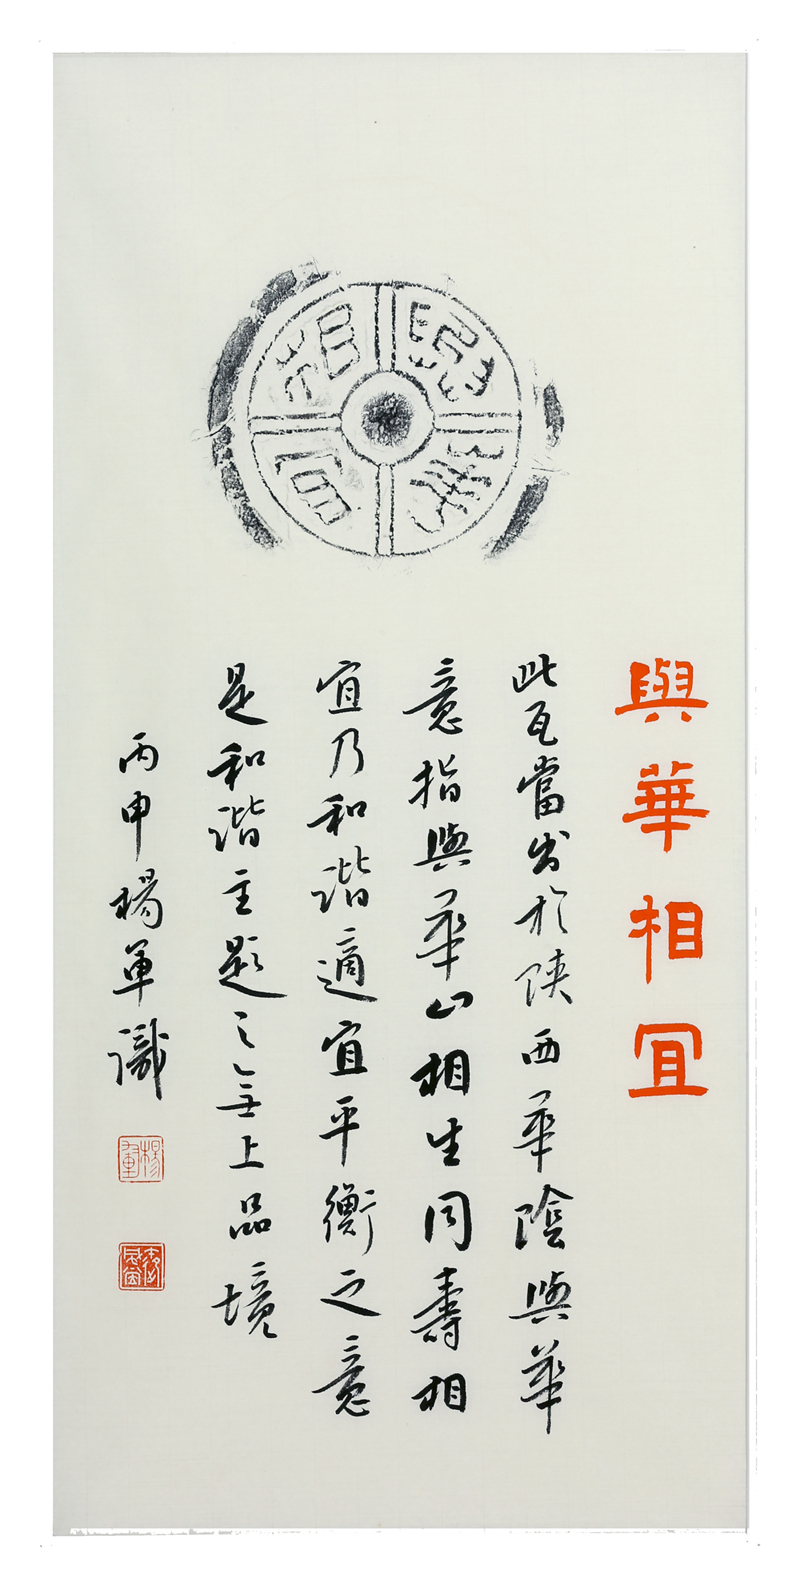 與華相宜
與華相宜
此瓦當出於陝西華陰與華
意指與華山相生同壽相
宜乃和谐適宜平衡之意
是和谐主題之無上品境
丙申楊軍識
楊軍